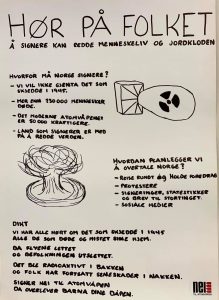 HØR PÅ FOLKET
Å SIGNERE KAN REDDE MENNESKELIV OG JORDKLODEN
HVORFOR MÅ NORGE SIGNERE?
- VI VIL IKKE GJENTA DET SOM SKJEDDE I 1945.
- MER ENN 250 000 MENNESKER DØDE.
- DET MODERNE ATOMVÅPENET ER 50 KRAFTIGERE.
- LAND SOM SIGNERER ER MED PÅ Å REDDE VERDEN.
HVORDAN PLANLEGGER VI Å OVERTALE NORGE?
- REISE RUNDT OG HOLDE FOREDRAG
- PROTESTERE
- SIGNERINGER, STATESTIKKER OG BREV TIL STORTINGET.
- SOSIALE MEDIER
DIKT
VI HAR ALLE HØRT OM DET SOM SKJEDDE I 1945
ALLE DE SOM DØDE OG MISTET SINE HJEM.
DA FLYENE LETTET
OG BEFOLKNINGEN UTSLETTET.
DET BLE RADIOAKTIVT I BAKKEN
OG FOLK HAR FORTSATT SENESKADER I NAKKEN.
SIGNER NEI TIL ATOMVÅPEN
DA OVERLEVER BARNA DINE DÅPEN.
nei